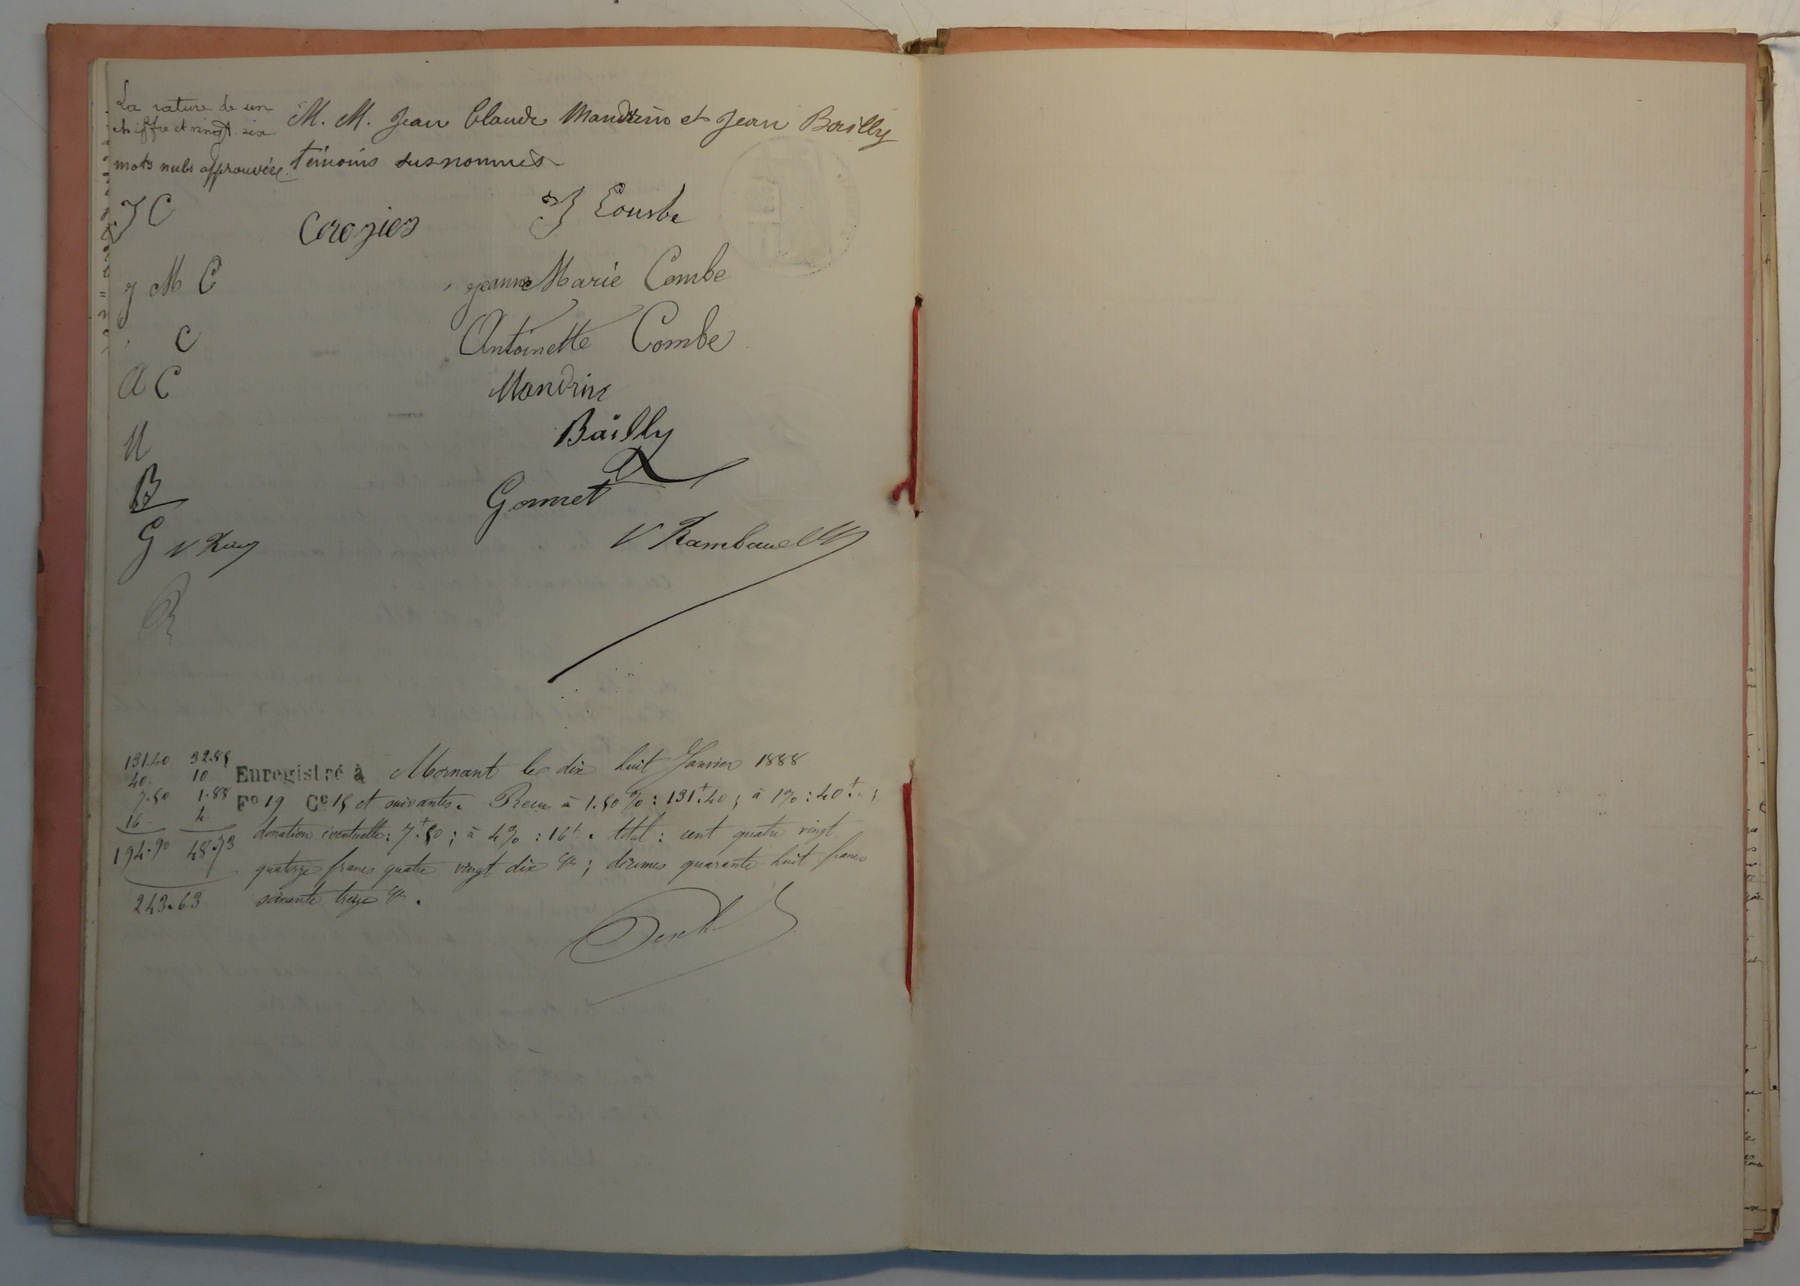 La rature de un
chiffre et vingt six
mots nuls approuvée.
M. M. Jean Claude Mandrin et Jean Bailly
témoins susnommés
J C
Crozier
J Combe
J M C
Jeanne Marie Combe
C
Antoinette Combe
A C
Mandrin
M
Bailly
B
Gonnet
G
V Rambaud
131.40 32.85
40. 10
7.50 1.88
16 4
194.90 48.73
243.63
Enregistré à Mornant le dix huit Janvier 1888
Fo 19 Ce 15 et suivantes. Reçu à 1.50 % : 131f.40 ; à 1% : 40f. ;
donation éventuelle : 7f.50 ; à 4% : 16f. total : cent quatre vingt
quatorze francs quatre vingt dix ces ; décimes quarante huit francs
soixante treize ces.